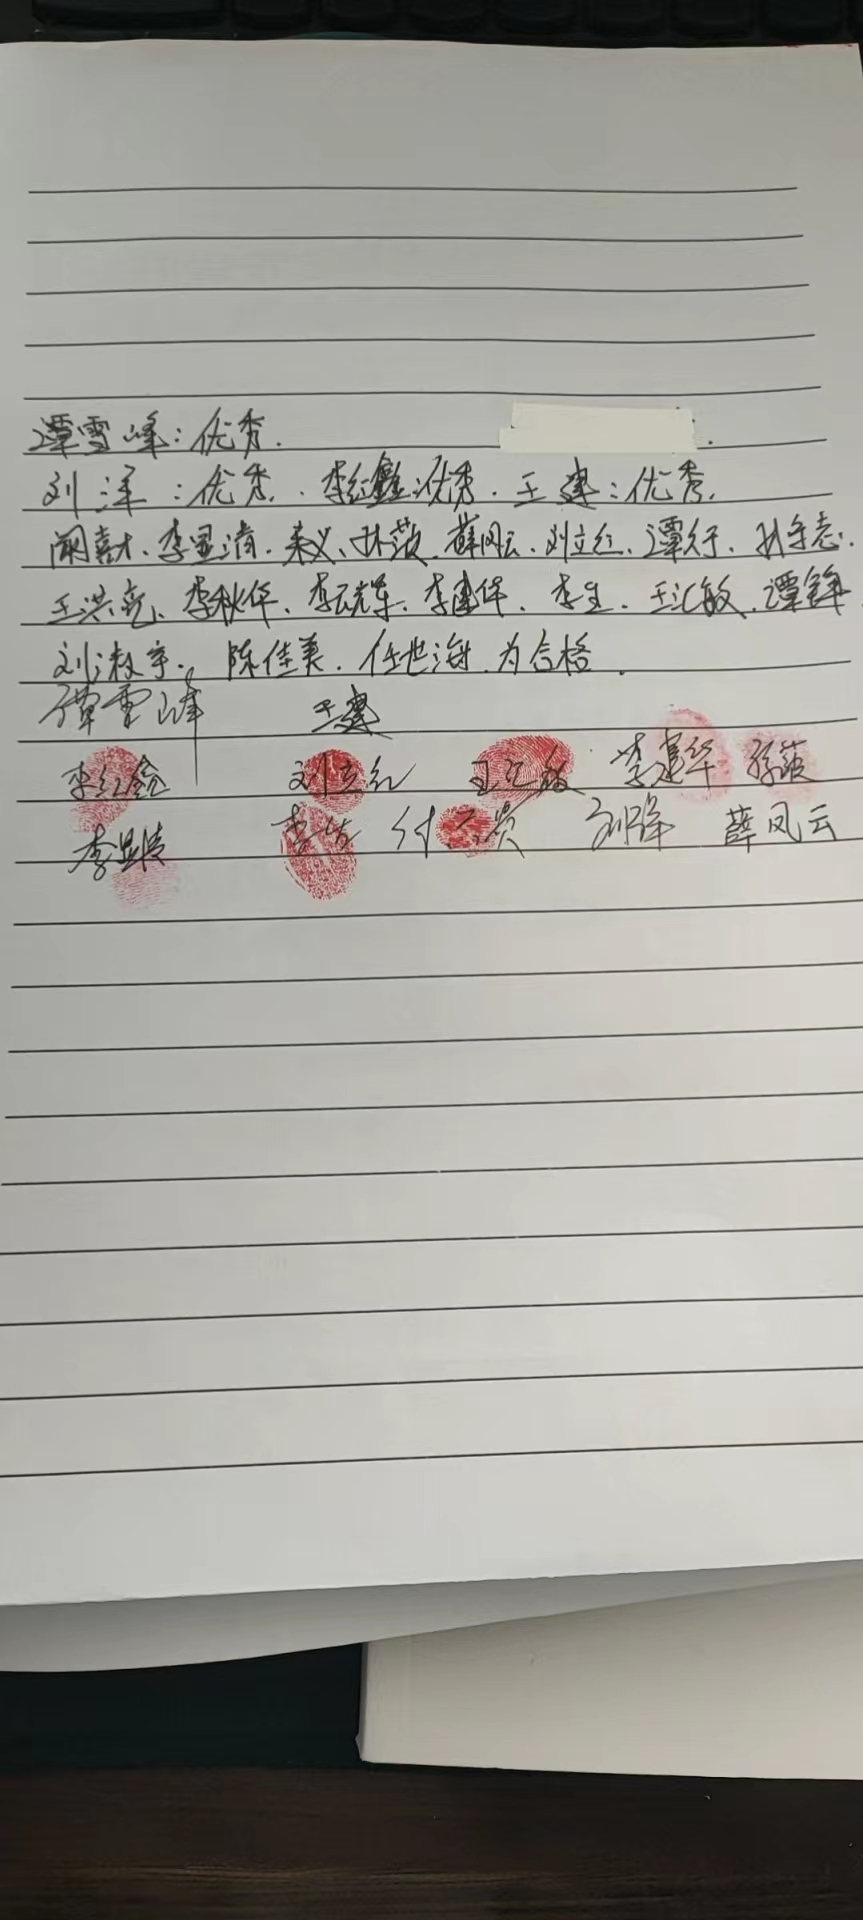 谭雪峰：优秀.
刘洋：优秀. 李红鑫：优秀. 王建：优秀.
李显清. 孙菠. 薛凤云. 刘立红. 谭行.
王洪亮、李秋华、李建华、李生、王汇敏、谭锋
刘淑宇、陈佳美、任世海 为合格.
谭雪峰 王建
李红鑫 刘立红 王汇敏 李建华 孙菠
李显清 李生 薛凤云